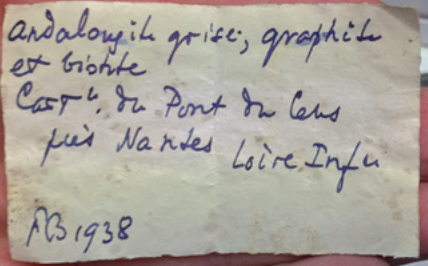 andalousite grise, graphite
et biotite
Carr. du Pont du Cens
près Nantes Loire Infre
AB 1938